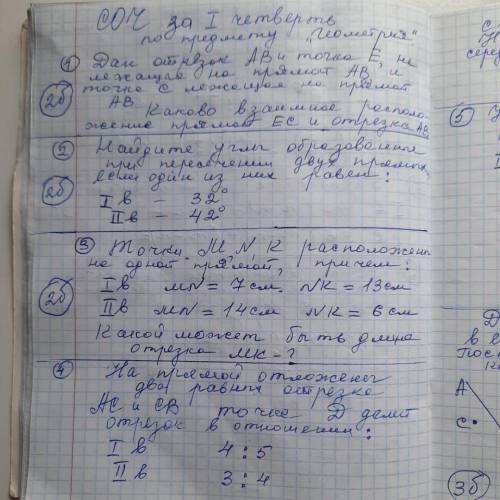 СОЧ за I четверть
по предмету "Геометрия".
① Дан отрезок АВ и точка Е, не
лежащая на прямой АВ, и
точка С лежащая на прямой
АВ
2б
Каково взаимное располо-
жение прямой ЕС и отрезка АВ
② Найдите углы образованн
при пересечении двух прямых
если один из них равен:
2б
I в - 32°
II в - 42°
③ Точки M, N, K расположены
на одной прямой, причем:
2б
I в MN = 7 см. NK = 13 см
II в MN = 14 см NK = 6 см
Какой может быть длина
отрезка МК - ?
④ На прямой отложены
два равных отрезка
АС и СВ точка D делит
отрезок в отношении:
I в 4 : 5
II в 3 : 4
сере
⑤
D
в е
А
С
3б